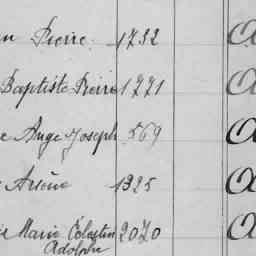 Pierre 1732
Baptiste Pierre 1771
Ange Joseph 569
Arsène 1325
Marie Célestin 2070
Adolphe